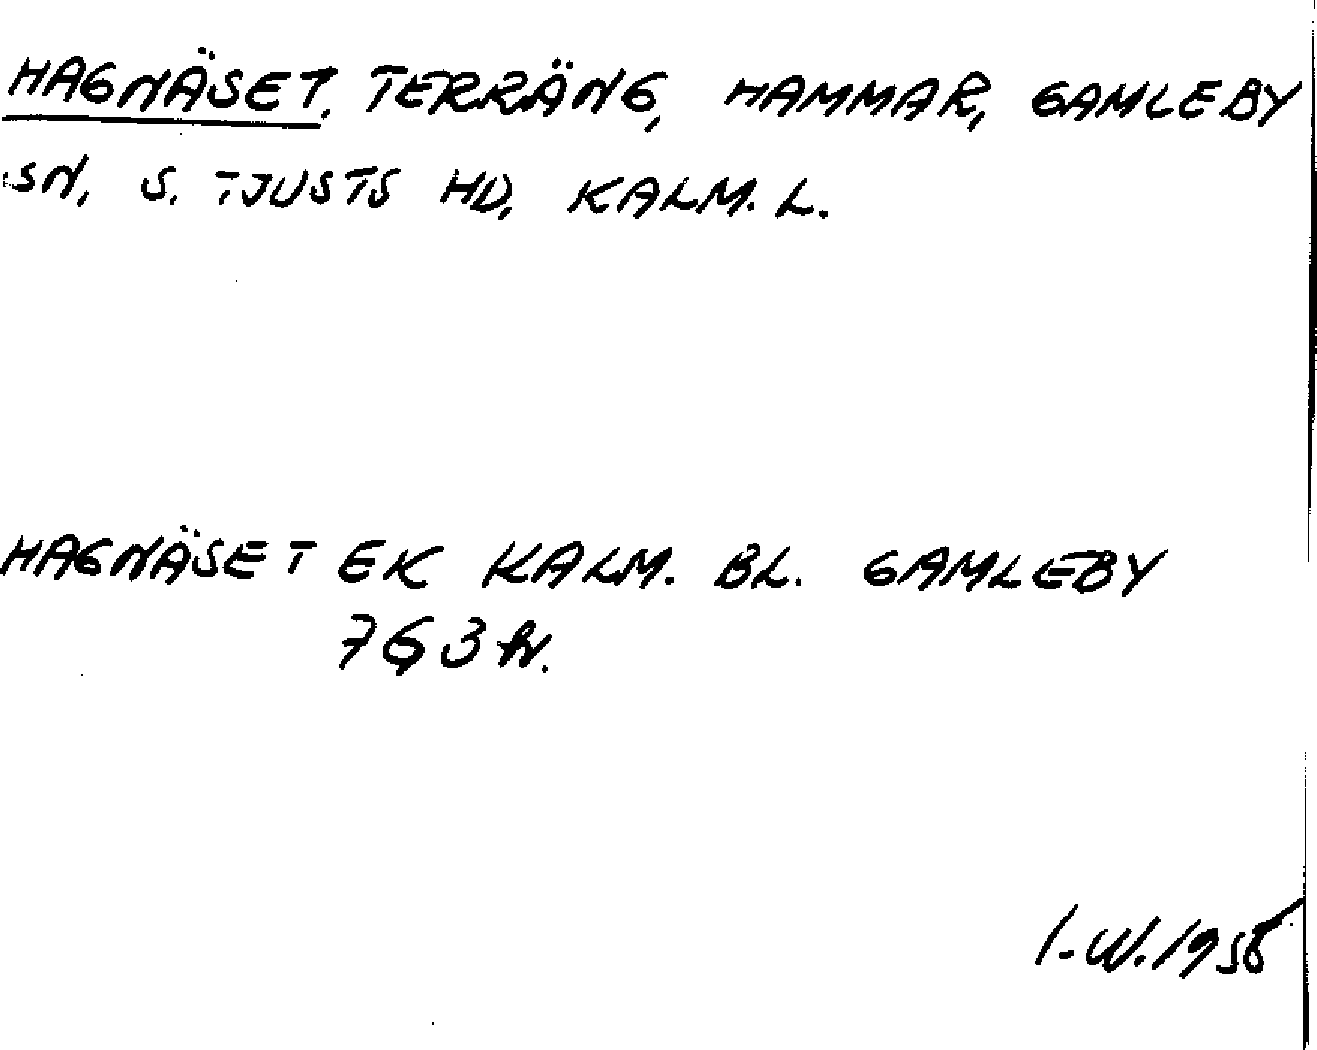 HAGNÄSET, TERRÄNG, HAMMAR, GAMLEBY
SN, S. TJUSTS HD, KALM. L.
HAGNÄSET EK KALM. BL. GAMLEBY
I-W. 1958